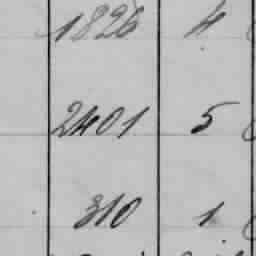 1826 4
2401 5
310 1